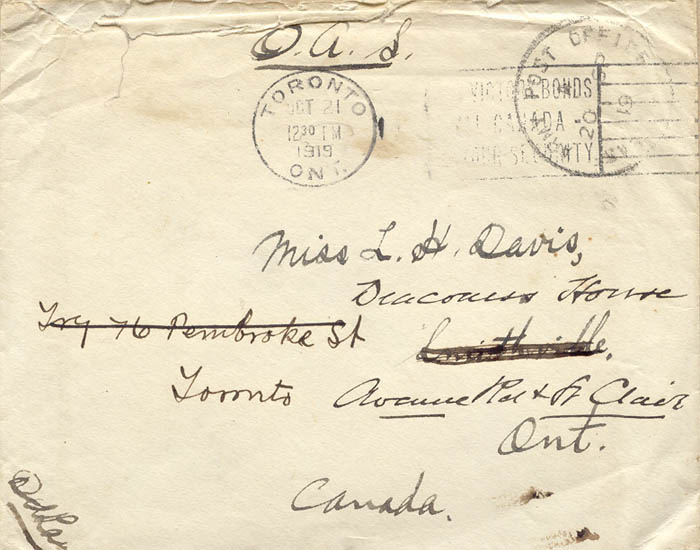 O. A. S.
TORONTO
OCT 21
12 30 PM
1919
ONT.
POST OFFICE
20
19
VICTORY BONDS
CANADA
Miss L. H. Davis,
Deaconess House
Try 76 Pembroke St
Smithville,
Toronto Avenue Rd & St Clair
Ont.
Canada.